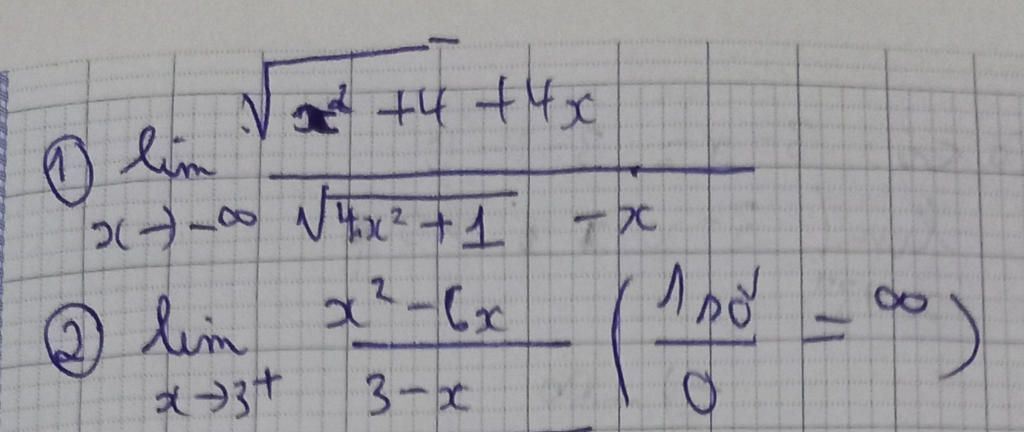 ① lim x→-∞ (√(x² + 4) + 4x) / (√(4x² + 1) - x)
② lim x→3⁺ (x² - 6x) / (3 - x) (1 số / 0 = ∞)